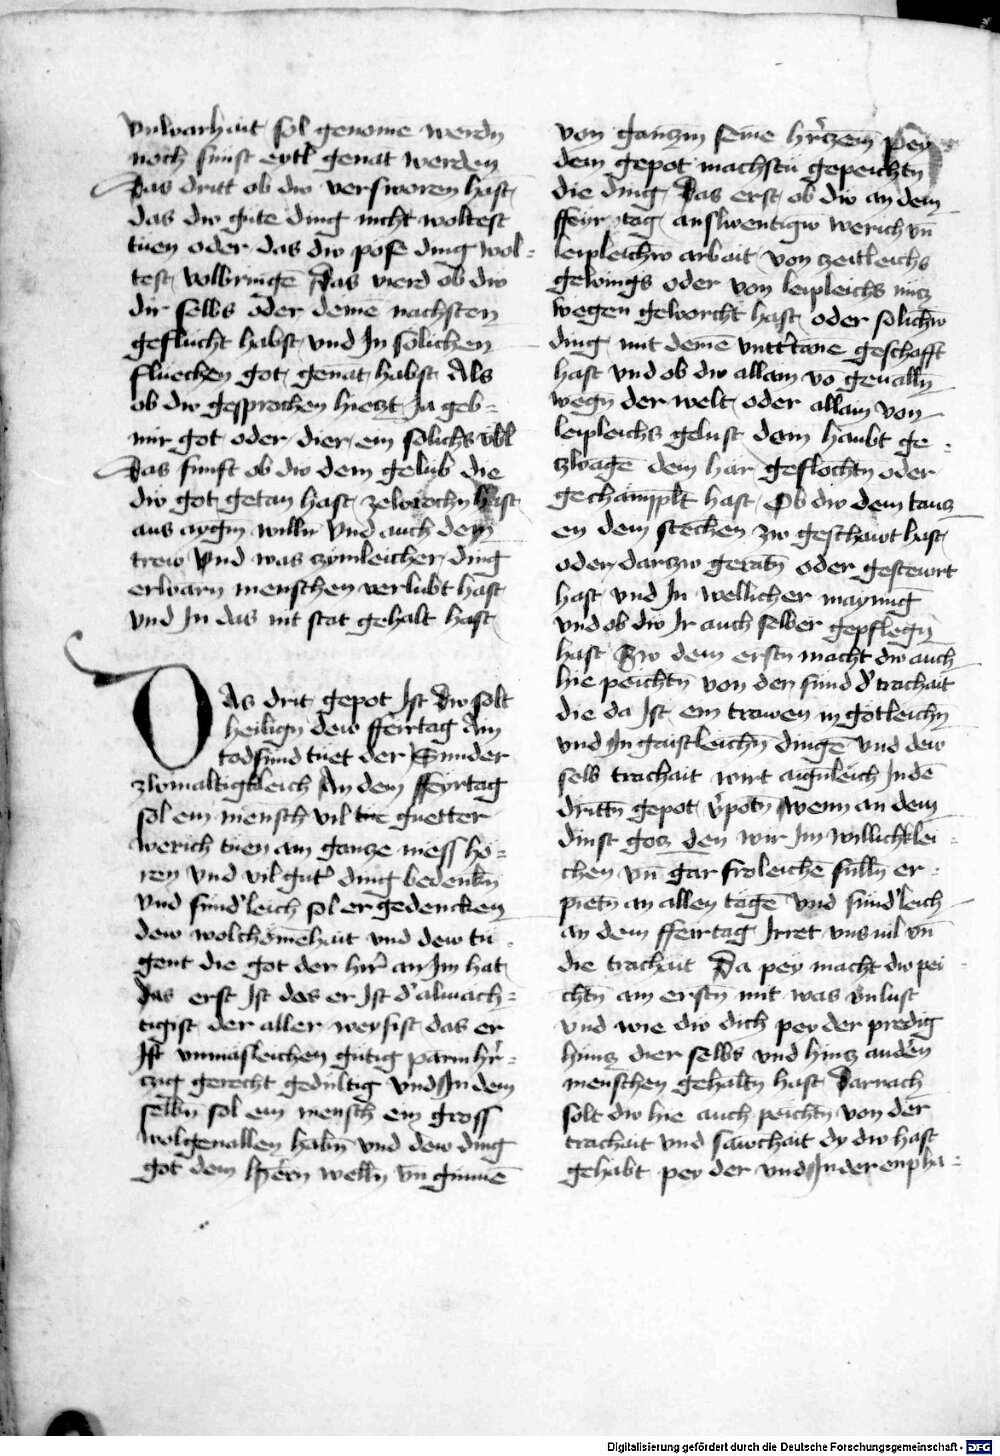 vnwarhait sol genome werdn
noch sunst eytl genāt werden
Das dritt ob dw versworen hast
das dw gute ding nicht woltest
tuen oder das dw pose ding wol=
test volbringē Das vierd ob dw
dir selbs oder demē nachsten
geflucht habst vnd Jn solichen
fluechen got genāt habst Als
ob dw gesprochen hietzt Ja geb=
mir got oder dier ein solichs vbl
Das funft ob dw dem gelub die
dw got getan hast zebrochn hast
aus aygm willn vnd auch dem
trew vnd was zimleicher ding
erbarn menschen verlubt hast
vnd Jn das nit stat gehalt hast
DAs drit gepot Jst Dw solt
heilign dew ffeirtag Am
todsund tuet der Sunder
zwiualtigkleich An dem ffeyrtag
sol ein mensch vil guetter
werich tuen ain gancze mess ho=
ren vnd vil gut' ding bedenkn̄
vnd sund'leich sol er gedencken
dew wolchōmēhait vnd dew tu=
gent die got der her̄ an Jm hat
Das erst Jst das er Jst d' almach=
tigist der aller weysist das er
Jst vnmasleichen gutig parmhr̄=
czig gerecht gedultig vnd Jn dem
selbn̄ sol ein mensch ein gross
wolgeuallen habn̄ vnd dew ding
got dem herrn welln̄ vn̄ gunnē
von ganczm seinē hr̄czem Pey
dem gepot machstu gepeichtn̄
die ding Das erst ob dw an dem
ffeyrtag auswentigw werich vn̄
leipleichw arbait von zeitleichs
gewings oder von leipleichs nucz
wegen geworcht hast oder solichw
ding mit demē vntt'tane geschafft
hast vnd ob dw allain vō geualln̄
wegn̄ der welt oder allain von
leipleichs gelust dein haubt ge=
zwagē dein har geflochtn oder
gechamplt hast Ob dw dem tanz
en dem stechen zw geschawt hast
oder darzw geratn̄ oder gestewrt
hast vnd Jn wellicher maynūg
vnd ob dw Jr auch selber gepflegn̄
hast Zw dem erstn macht dw auch
hie peichtn̄ von der sund d' trachait
die da Jst ein trawen in gotleichn̄
vnd Jn gaistleichn̄ dingē vnd dew
selb trachait wirt aignleich Jn dē
drittn̄ gepot v'potn̄ Wenn an dem
dinst gotz den wir Jm willichklei=
chen vn̄ gar froleichē sulln̄ er=
pietn̄ an allen tagē vnd sund'leich
an dem ffeirtag Jrret vns vil vn̄
die trachait Da pey macht dw pei=
chtn̄ am erstn̄ mit was vnlust
vnd wie dw dich pey der predig
hincz dier selbs vnd hincz andern
menschen gehaltn̄ hast Darnach
solt dw hie auch peichtn̄ von der
trachait vnd sawmchait dy dw hast
gehabt pey der vnd Jn der enpha=
Digitalisierung gefördert durch die Deutsche Forschungsgemeinschaft - DFG